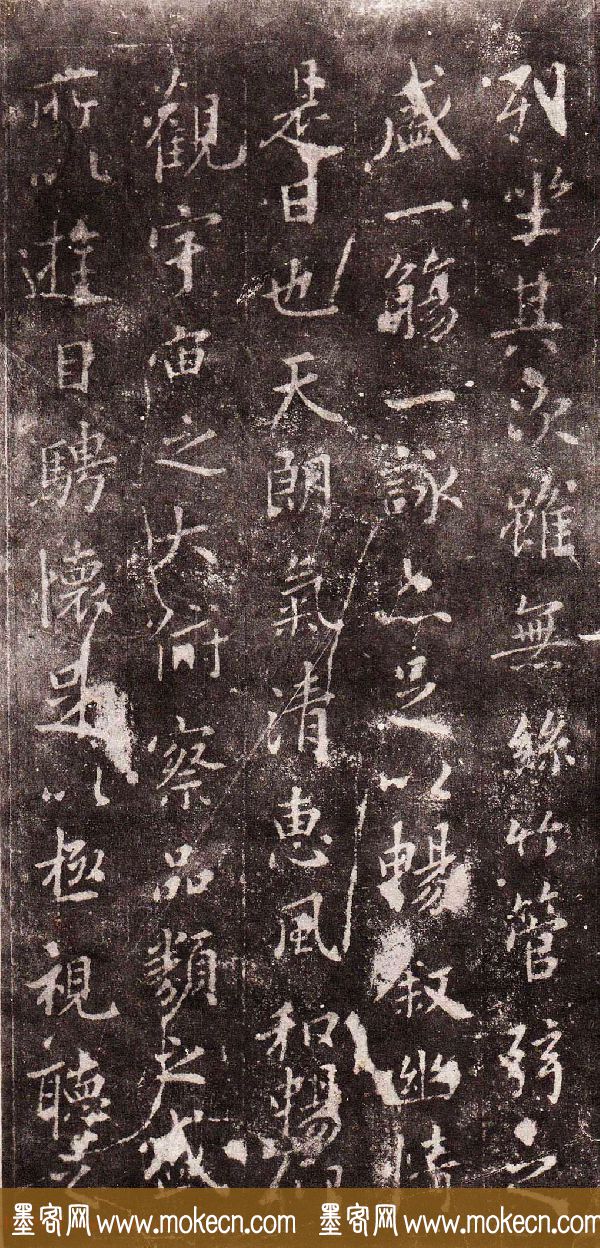 列坐其次雖無絲竹管弦之
盛一觴一詠亦足以暢叙幽情
是日也天朗氣清惠風和暢仰
觀宇宙之大俯察品類之盛
所以遊目騁懷足以極視聽之
墨客网 www.mokecn.com 墨客网 www.mokecn.com